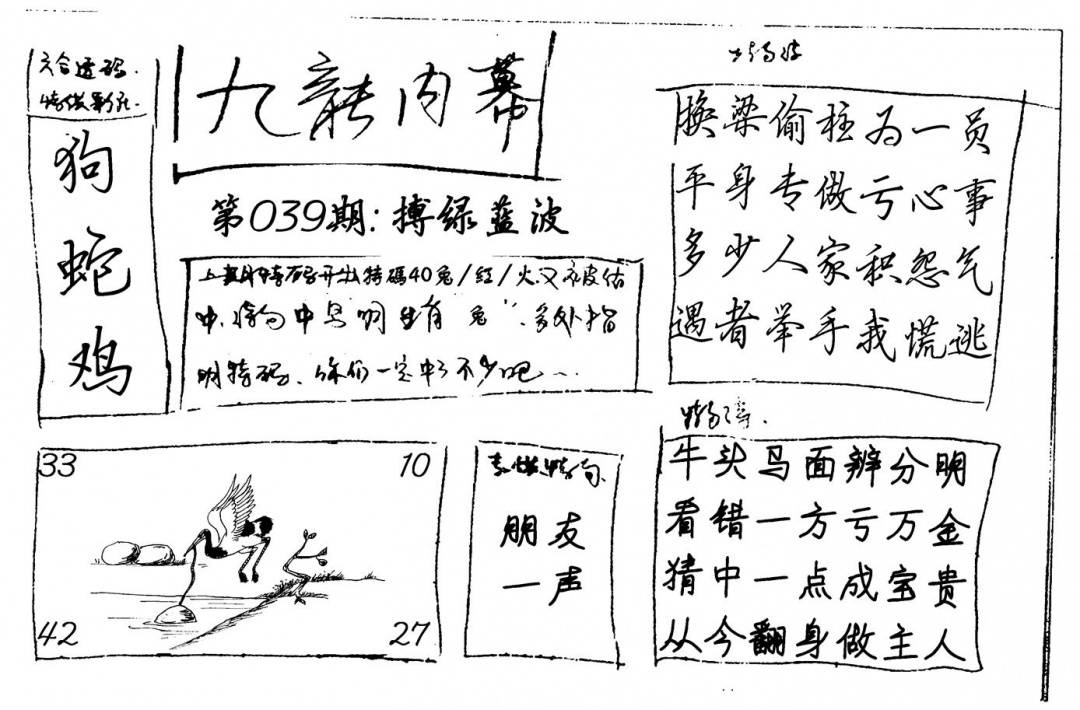 六合透码.
九龍内幕
狗
蛇
鸡
第039期:搏绿蓝波
上期特码开出特碼40兔/红/火.又被估
中.特句中马明生肖"兔".多处指
明特码.你们一定中了不少吧...
换梁偷柱为一员
平身专做亏心事
多少人家积怨气
遇者举手我慌逃
牛头马面辨分明
看错一方亏万金
猜中一点成宝贵
从今翻身做主人
朋友
一声
33
10
42
27